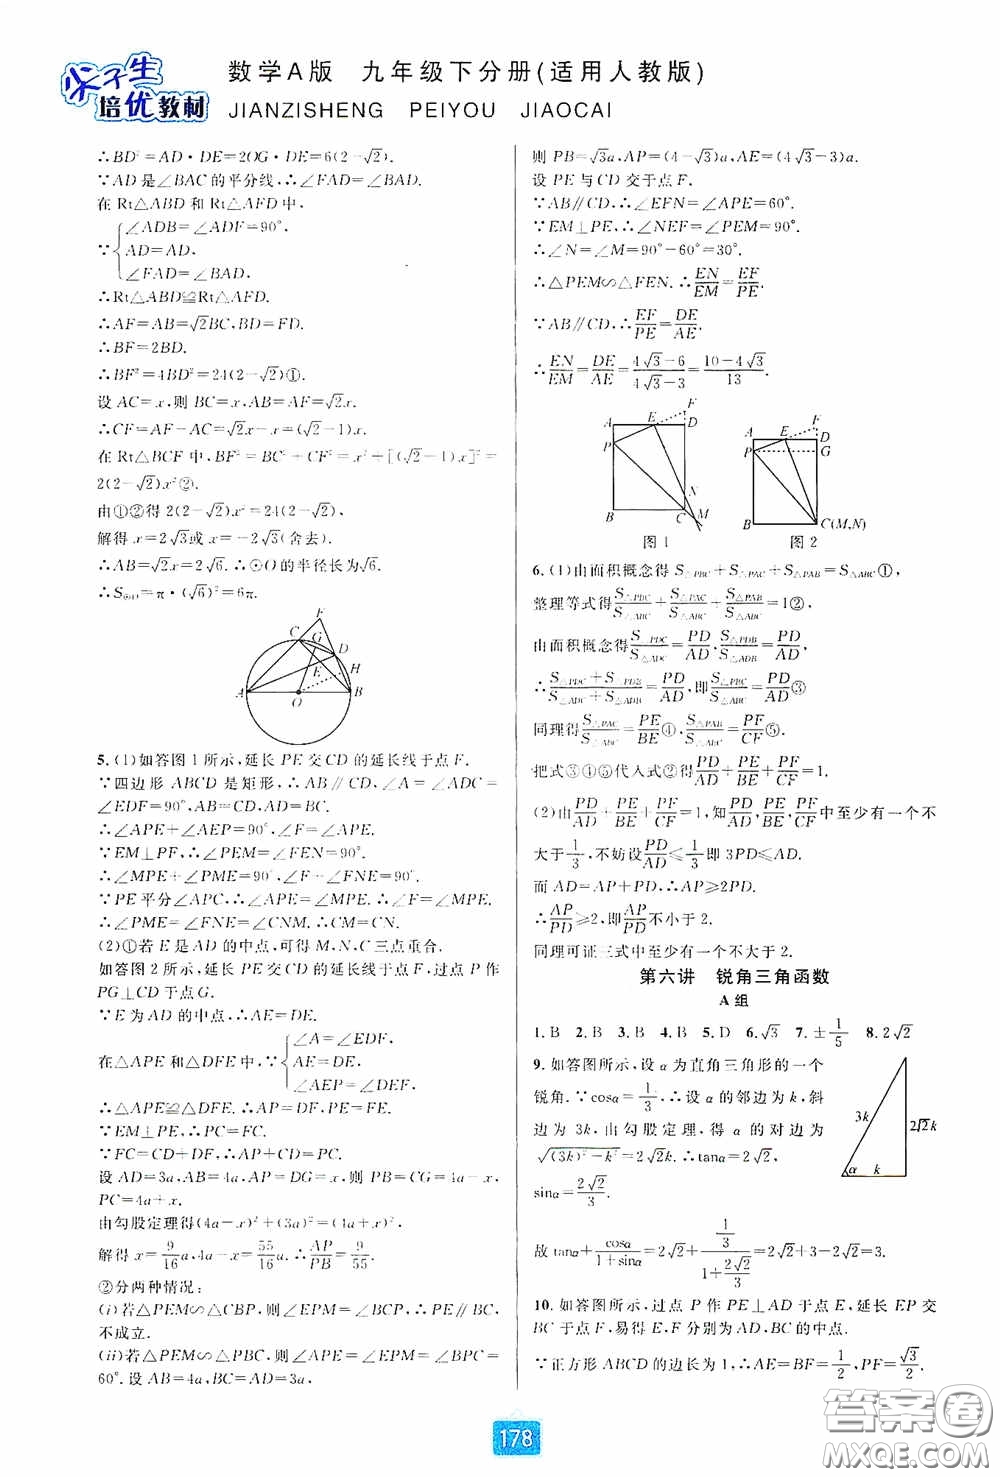 尖子生
培优教材
数学A版 九年级下分册(适用人教版)
JIANZISHENG PEIYOU JIAOCAI
∴BD²=AD·DE=2OG·DE=6(2-√2).
∵AD是∠BAC的平分线,∴∠FAD=∠BAD.
在Rt△ABD和Rt△AFD中,
∠ADB=∠ADF=90°,
∵ AD=AD,
∠FAD=∠BAD,
∴Rt△ABD≌Rt△AFD.
∴AF=AB=√2BC,BD=FD.
∴BF=2BD.
∴BF²=4BD²=24(2-√2)①.
设AC=x,则BC=x,AB=AF=√2x.
∴CF=AF-AC=√2x-x=(√2-1)x.
在Rt△BCF中,BF²=BC²+CF²=x²+[(√2-1)x]²=
2(2-√2)x²②.
由①②得2(2-√2)x²=24(2-√2),
解得x=2√3或x=-2√3(舍去).
∴AB=√2x=2√6.∴⊙O的半径长为√6.
∴S=π·(√6)²=6π.
F
C G
D
H
E
A O B
5.(1)如答图1所示,延长PE交CD的延长线于点F.
∵四边形ABCD是矩形,∴AB∥CD,∠A=∠ADC
=∠EDF=90°,AB=CD,AD=BC.
∴∠APE+∠AEP=90°,∠F=∠APE.
∵EM⊥PF,∴∠PEM=∠FEN=90°.
∴∠MPE+∠PME=90°,∠F+∠FNE=90°.
∵PE平分∠APC,∴∠APE=∠MPE.∴∠F=∠MPE.
∴∠PME=∠FNE=∠CNM.∴CM=CN.
(2)①若E是AD的中点,可得M、N、C三点重合.
如答图2所示,延长PE交CD的延长线于点F,过点P作
PG⊥CD于点G.
∵E为AD的中点,∴AE=DE.
∠A=∠EDF,
在△APE和△DFE中,∵ AE=DE,
∠AEP=∠DEF,
∴△APE≌△DFE.∴AP=DF,PE=EF.
∵EM⊥PE,∴PC=FC.
∵FC=CD+DF,∴AP+CD=PC.
设AD=3a,AB=4a,AP=DG=x,则PB=CG=4a-x,
PC=4a+x.
由勾股定理得(4a-x)²+(3a)²=(4a+x)².
解得x=9/16a,4a-x=55/16a.∴AP/PB=9/55.
②分两种情况:
(i)若△PEM∽△CBP,则∠EPM=∠PCB,∴PE∥BC.
不成立.
(ii)若△PEM∽△PBC,则∠APE=∠EPM=∠BPC=
60°.设AB=4a,BC=AD=3a,
则PB=√3a,AP=(4-√3)a,AE=(4√3-3)a.
设PE与CD交于点F.
∵AB∥CD,∴∠EFN=∠APE=60°.
∵EM⊥PE,∴∠NEF=∠PEM=90°.
∴∠N=∠M=90°-60°=30°.
∴△PEM∽△FEN.∴EN/EM=EF/PE.
∵AB∥CD,∴EF/PE=DE/AE.
∴EN/EM=DE/AE=(4√3-6)/(4√3-3)=(10-4√3)/13.
F
A E D
P
N
B C M
图1
F
A E D
P G
B C(M,N)
图2
6.(1)由面积概念得S△PBC+S△PAC+S△PAB=S△ABC①,
整理等式得S△PBC/S△ABC+S△PAC/S△ABC+S△PAB/S△ABC=1②,
由面积概念得S△PDC/S△ADC=PD/AD,S△PDB/S△ADB=PD/AD.
∴(S△PDC+S△PDB)/(S△ADC+S△ADB)=PD/AD,即S△PBC/S△ABC=PD/AD③
同理得S△PAC/S△ABC=PE/BE④,S△PAB/S△ABC=PF/CF⑤.
把式③④⑤代入式②得PD/AD+PE/BE+PF/CF=1.
(2)由PD/AD+PE/BE+PF/CF=1,知PD/AD,PE/BE,PF/CF中至少有一个不
大于1/3,不妨设PD/AD≤1/3即3PD≤AD.
而AD=AP+PD,∴AP≥2PD.
∴AP/PD≥2,即AP/PD不小于2.
同理可证三式中至少有一个不大于2.
第六讲 锐角三角函数
A组
1.B 2.B 3.B 4.B 5.D 6.√3 7.±1/5 8.2√2
9.如答图所示,设α为直角三角形的一个
锐角.∵cosα=1/3,∴设α的邻边为k,斜
边为3k,由勾股定理,得α的对边为
√((3k)²-k²)=2√2k.∴tanα=2√2,
sinα=2√2/3.
3k 2√2k
α k
故tanα+cosα/(1+sinα)=2√2+(1/3)/(1+2√2/3)=2√2+3-2√2=3.
10.如答图所示,过点P作PE⊥AD于点E,延长EP交
BC于点F,易得E,F分别为AD,BC的中点.
∵正方形ABCD的边长为1,∴AE=BF=1/2,PF=√3/2.
178
答案圈
MXQE.COM